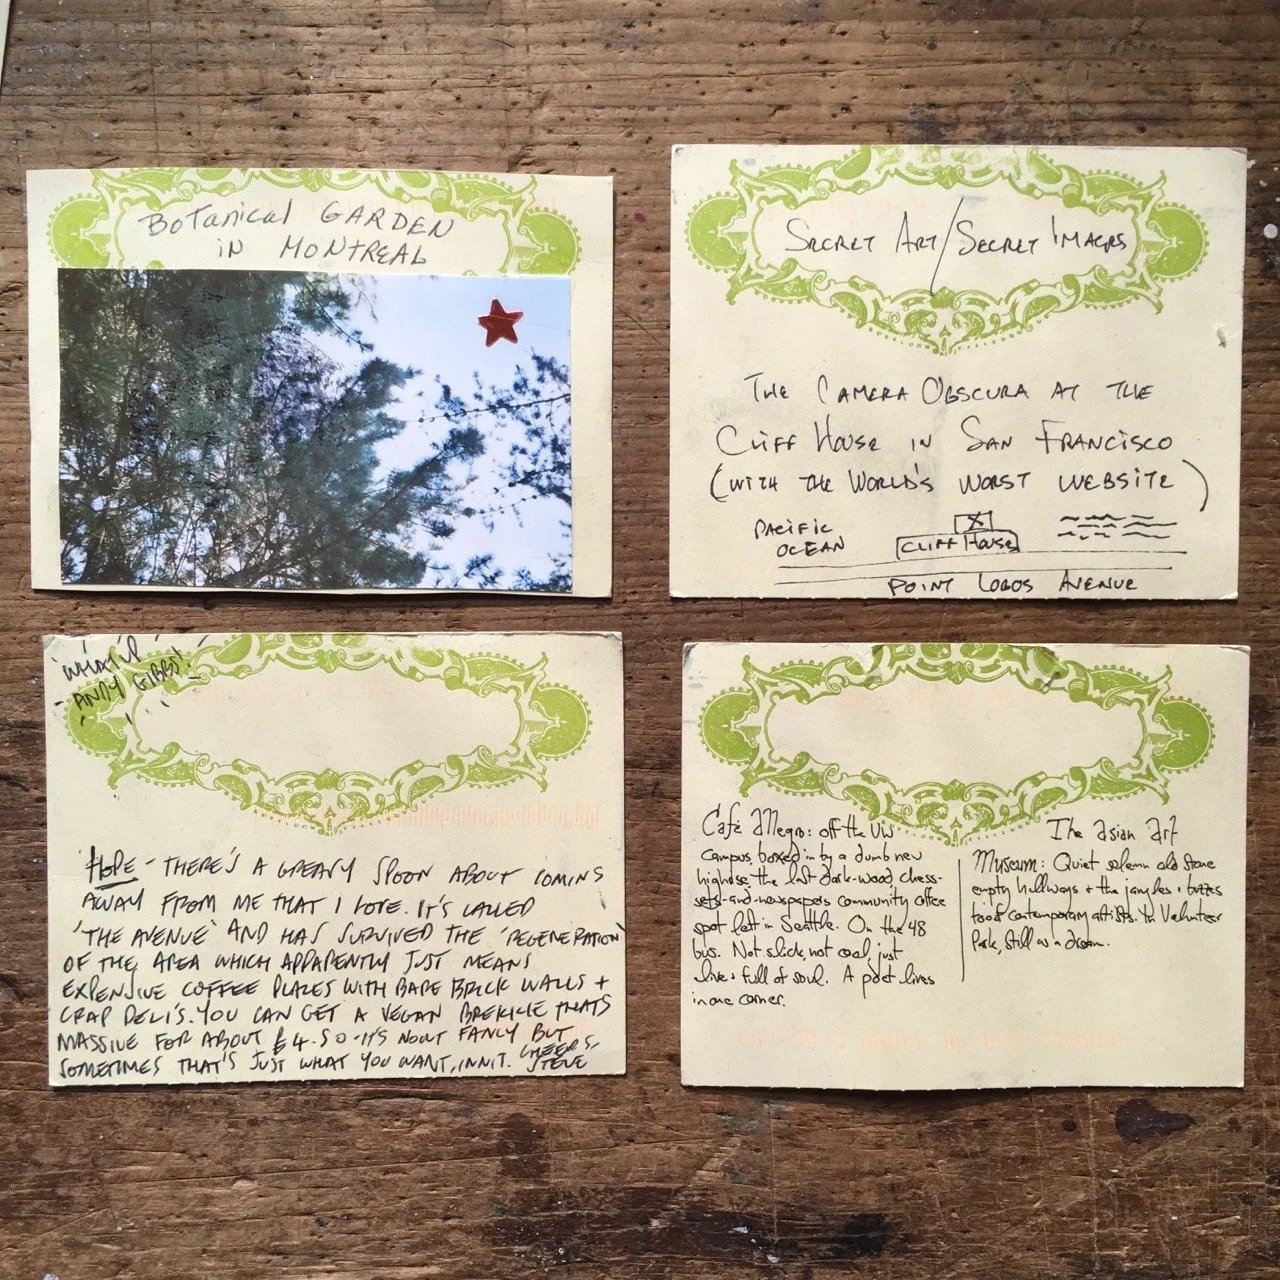 BOTANICAL GARDEN
IN MONTREAL
SECRET ART/SECRET IMAGES
THE CAMERA OBSCURA AT THE
CLIFF HOUSE IN SAN FRANCISCO
(WITH THE WORLD'S WORST WEBSITE)
PACIFIC
OCEAN
X
CLIFF HOUSE
POINT LOBOS AVENUE
WHAT'S UP
ANDY GIBBS!
HOPE - THERE'S A GREASY SPOON ABOUT 10MINS
AWAY FROM ME THAT I LOVE. IT'S CALLED
'THE AVENUE' AND HAS SURVIVED THE 'REGENERATION'
OF THE AREA WHICH APPARENTLY JUST MEANS
EXPENSIVE COFFEE PLACES WITH BARE BRICK WALLS +
CRAP DELI'S. YOU CAN GET A VEGAN BREKKIE THATS
MASSIVE FOR ABOUT £4.50 - IT'S NOWT FANCY BUT
SOMETIMES THAT'S JUST WHAT YOU WANT, INNIT. CHEERS,
STEVE
Café Allegro: off the UW
campus, boxed in by a dumb new
highrise, the last dark-wood, chess-
sets-and-newspapers community coffee
spot left in Seattle. On the 48
bus. Not slick, not cool, just
live + full of soul. A poet lives
in one corner.
The Asian Art
Museum: Quiet solemn old stone
empty hallways + the jangles + buzzes
of contemporary artists. In Volunteer
Park, still as a dream.